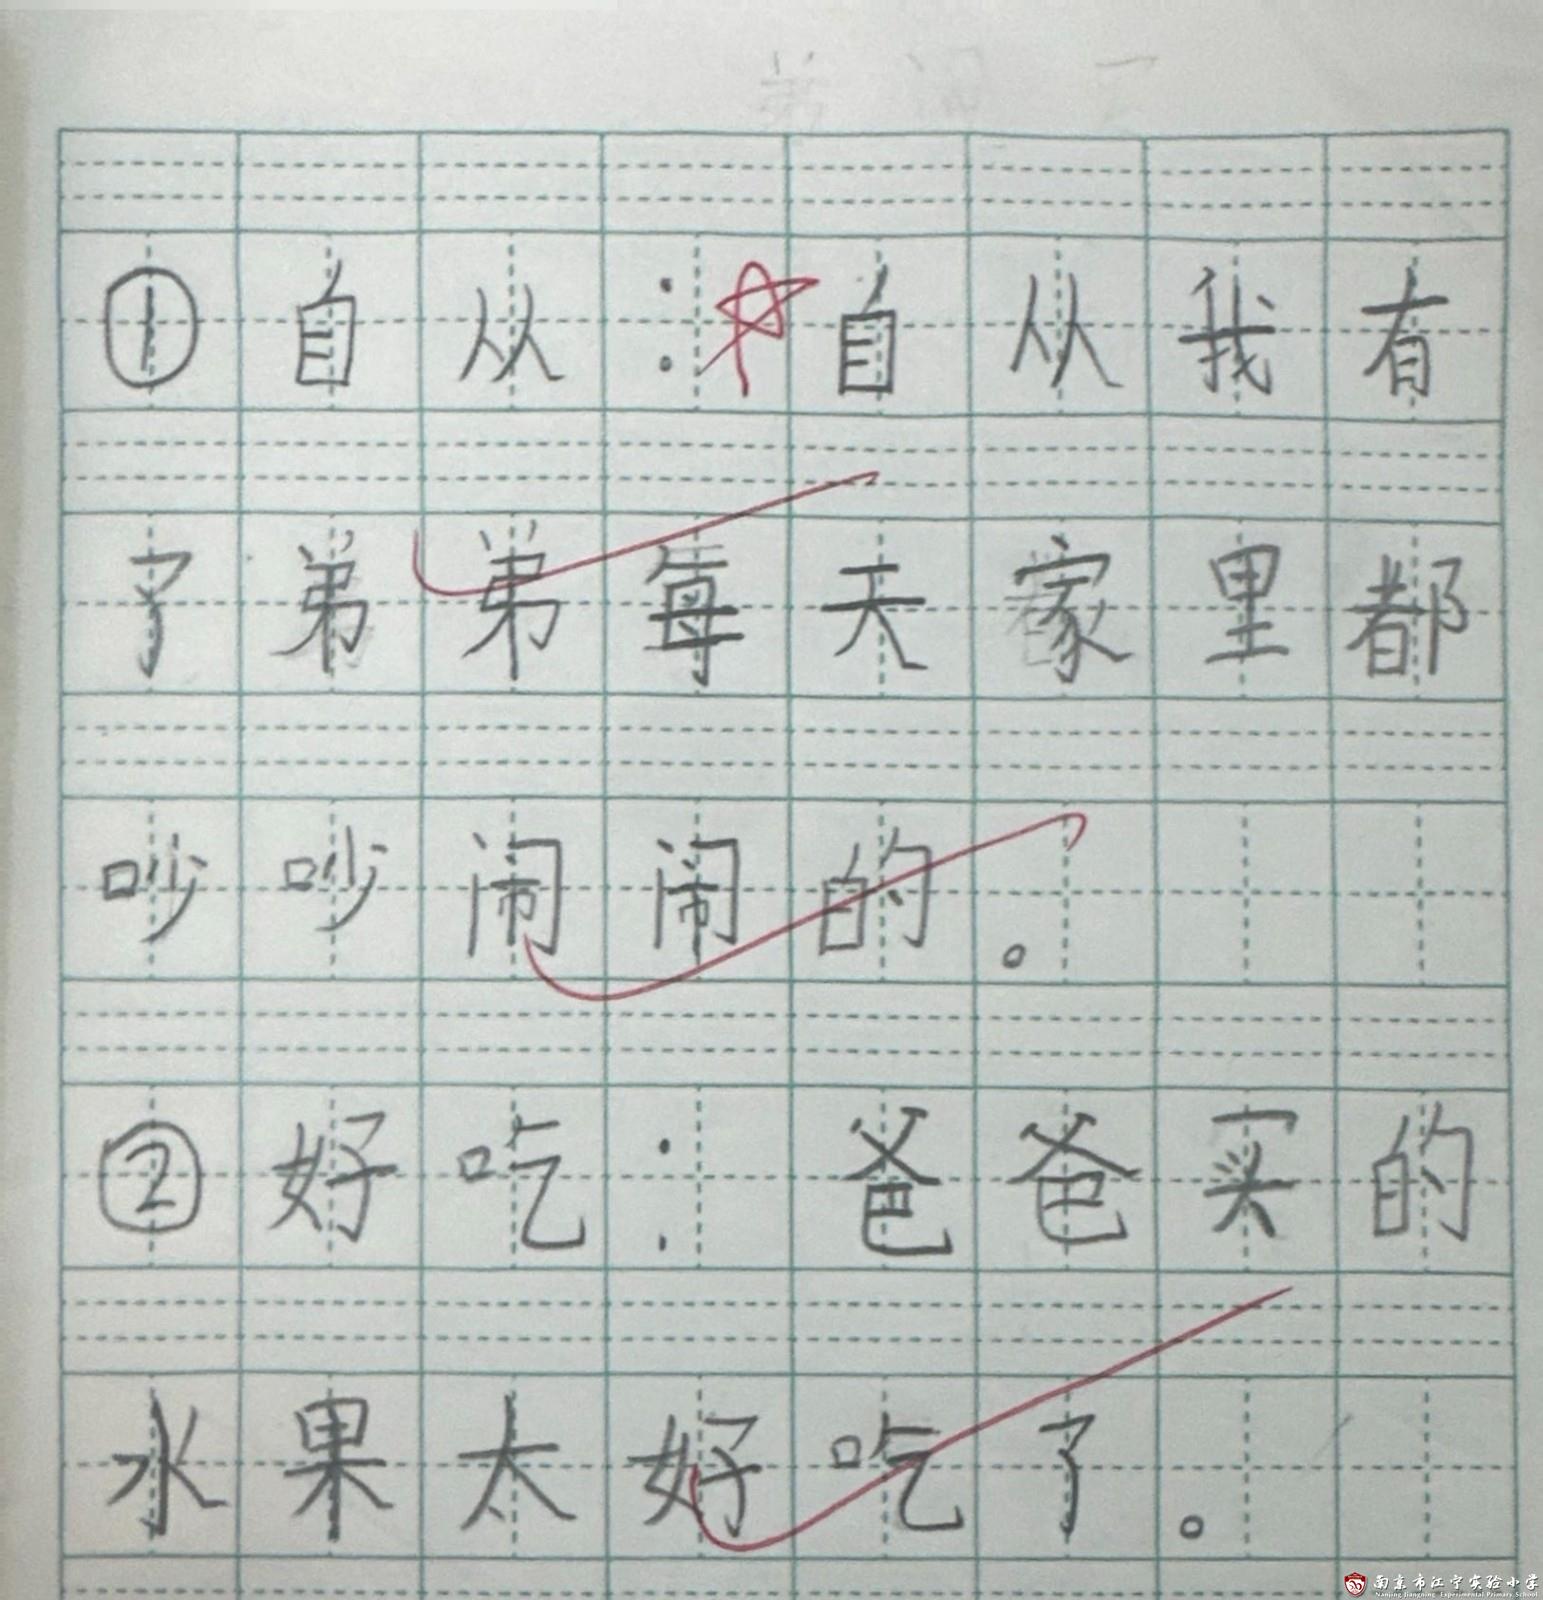 ①自从：自从我有
了弟弟每天家里都
吵吵闹闹的。
②好吃：爸爸买的
水果太好吃了。
南京市江宁实验小学
Nanjing Jiangning Experimental Primary School